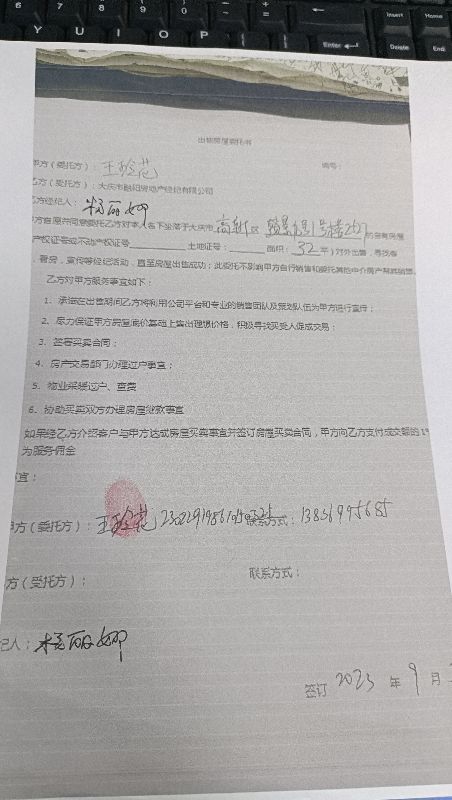 6 7 8 9 0
Insert Home
Y U I O P
Enter Delete End
出售房屋委托书
甲方（委托方）：王玲花 编号：
乙方（委托方）：大庆市融阳房地产经纪有限公司
乙方经纪人：杨丽娜
方自愿并同意委托乙方对本人名下坐落于大庆市高新区 1号楼 的自有房屋
产权证号或不动产权证号 土地证号： 面积：32平）对外出售，寻找客
，看房，宣传等经纪活动，直至房屋出售成功；此委托不影响甲方自行销售和委托其他中介房产帮其销售
乙方对甲方服务事宜如下：
1、承诺在出售期间乙方将利用公司平台和专业的销售团队及策划队伍为甲方进行宣传；
2、尽力保证甲方房屋底价基础上售出理想价格，积极寻找买受人促成交易；
3、签署买卖合同；
4、房产交易部门办理过户事宜；
5、物业采暖过户、查费
6、协助买卖双方办理房屋贷款事宜
如果经乙方介绍客户与甲方达成房屋买卖事宜并签订房屋买卖合同，甲方向乙方支付成交额的1%
为服务佣金
宜：
甲方（委托方）：王玲花 联系方式：13836995685
方（受托方）： 联系方式：
纪人：杨丽娜
签订 2023 年 9 月